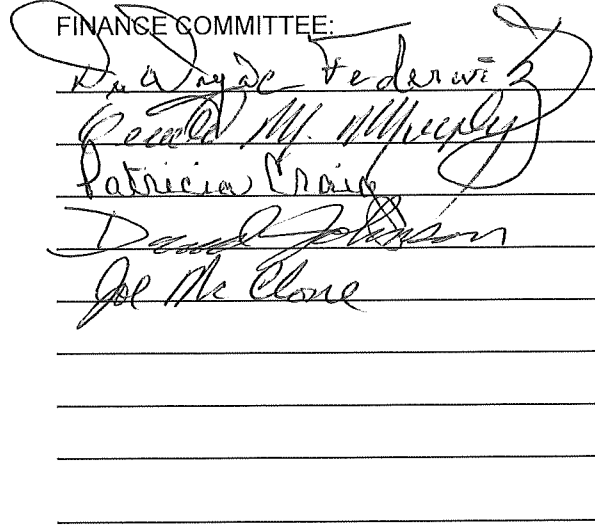 FINANCE COMMITTEE:
DuWayne Federwitz
Gerald M. Murphy
Patricia Craig
David Johnson
Joe McClone